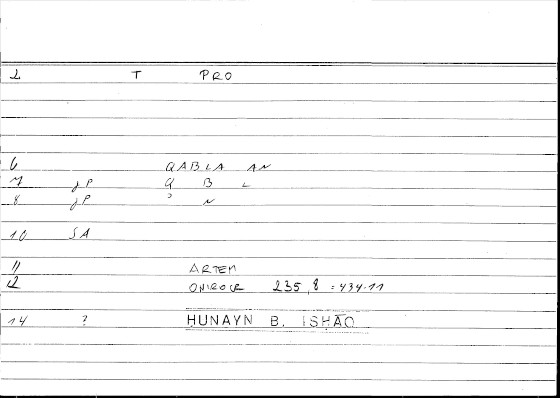 2 T PRO
6 QABLA AN
7 jP Q B L
8 jP ʾ N
10 SA
11 ARTEM
12 ONIROCR 235,8 = 434.11
14 ? HUNAYN B. ISḤĀQ